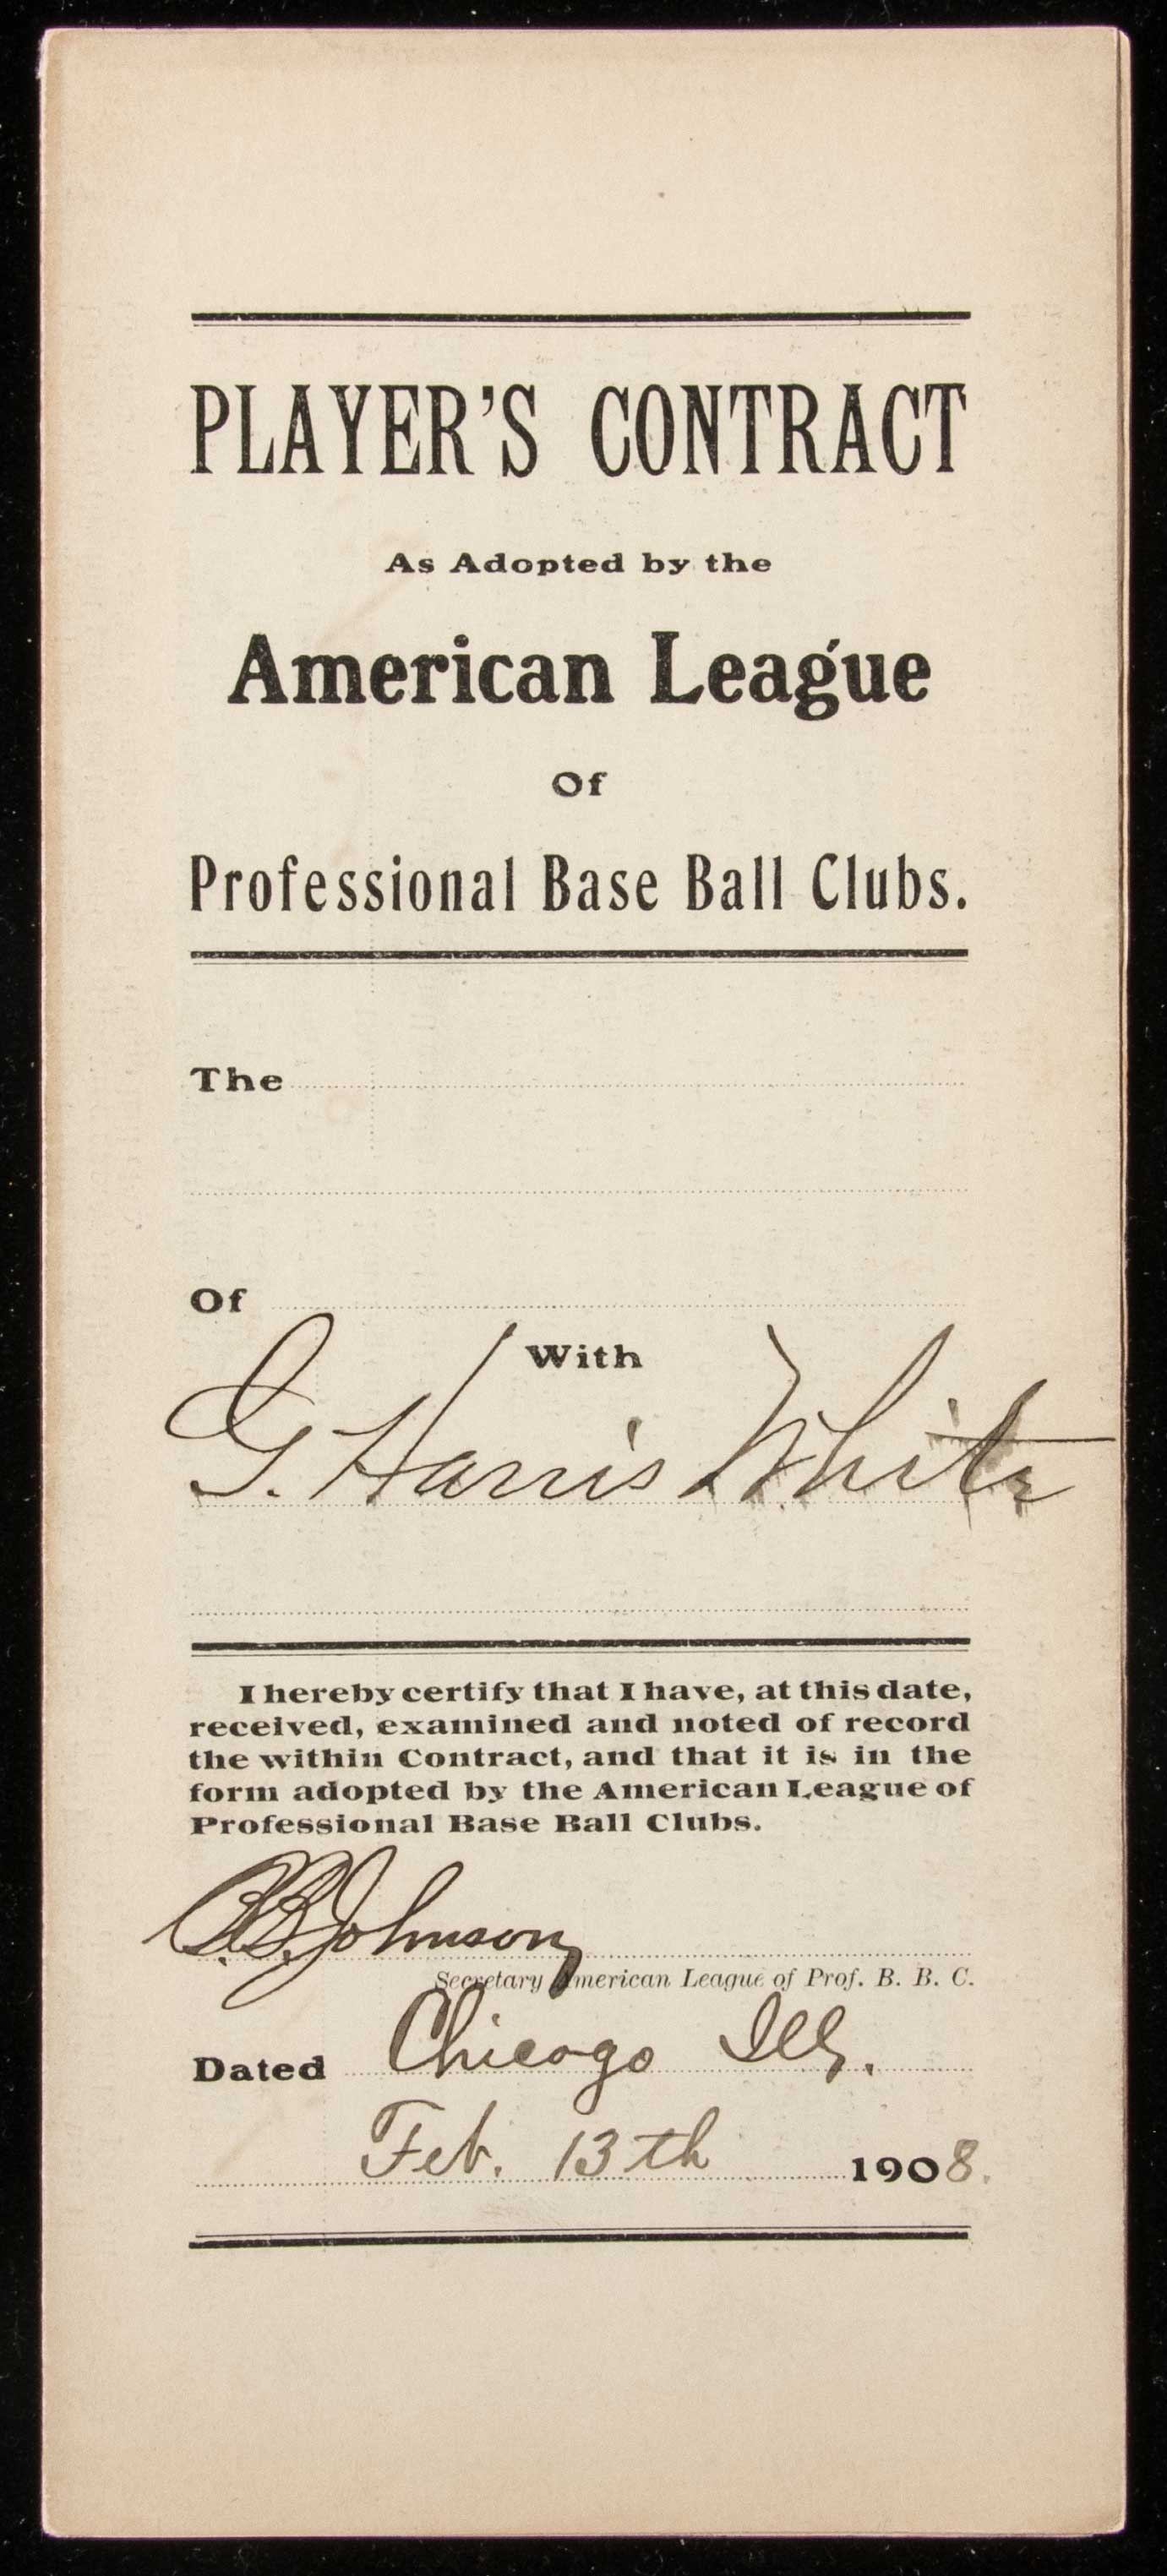 PLAYER'S CONTRACT
As Adopted by the
American League
Of
Professional Base Ball Clubs.
The
Of
With
G. Harris White
I hereby certify that I have, at this date,
received, examined and noted of record
the within Contract, and that it is in the
form adopted by the American League of
Professional Base Ball Clubs.
B.B. Johnson
Secretary American League of Prof. B. B. C.
Dated Chicago Ills.
Feb. 13th 1908.